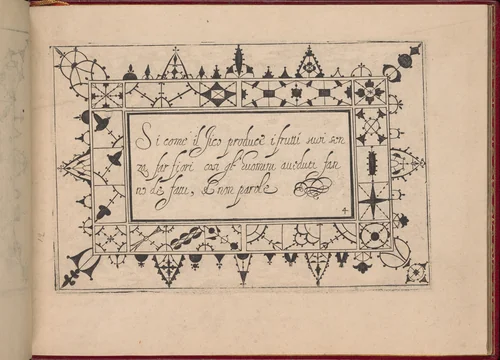 Si come il fico produce i frutti suoi sen
za far fiori cosi gl' huomini aueduti fan
no de fatti, & non parole
4